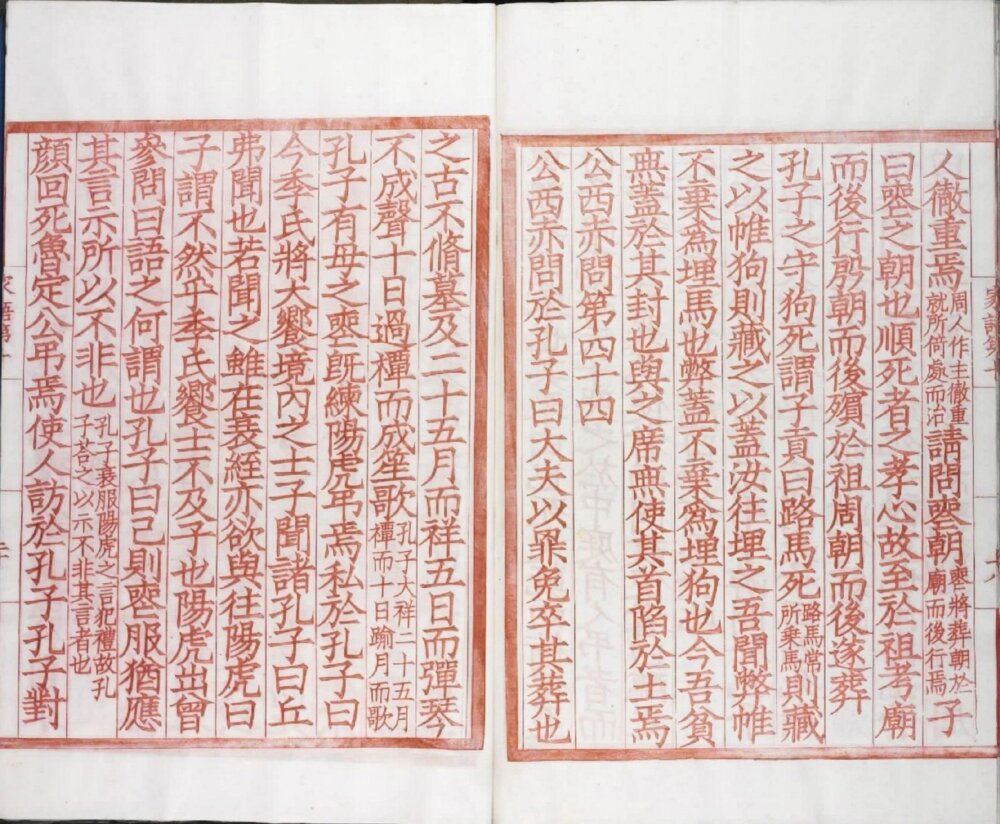 人徹重焉周人作主徹重就所倚處而治請問喪朝喪將葬朝於廟而後行焉子
曰喪之朝也順死者之孝心故至於祖考廟
而後行殷朝而後殯於祖周朝而後遂葬
孔子之守狗死謂子貢曰路馬死路馬常所乗馬則藏
之以帷狗則藏之以蓋汝往埋之吾聞弊帷
不棄為埋馬也弊蓋不棄為埋狗也今吾貧
無蓋於其封也與之席無使其首陷於土焉
公西赤問第四十四
公西赤問於孔子曰大夫以罪免卒其葬也
之古不脩墓及二十五月而祥五日而彈琴
不成聲十日過禫而成笙歌孔子大祥二十五月禫而十日踰月而歌
孔子有母之喪既練陽虎弔焉私於孔子曰
今季氏將大饗境內之士子聞諸孔子曰丘
弗聞也若聞之雖在衰絰亦欲與往陽虎曰
子謂不然乎季氏饗士不及子也陽虎出曾
參問曰語之何謂也孔子曰己則喪服猶應
其言示所以不非也孔子衰服陽虎之言犯禮故孔子荅之以示不非其言者也
顏回死魯定公弔焉使人訪於孔子孔子對